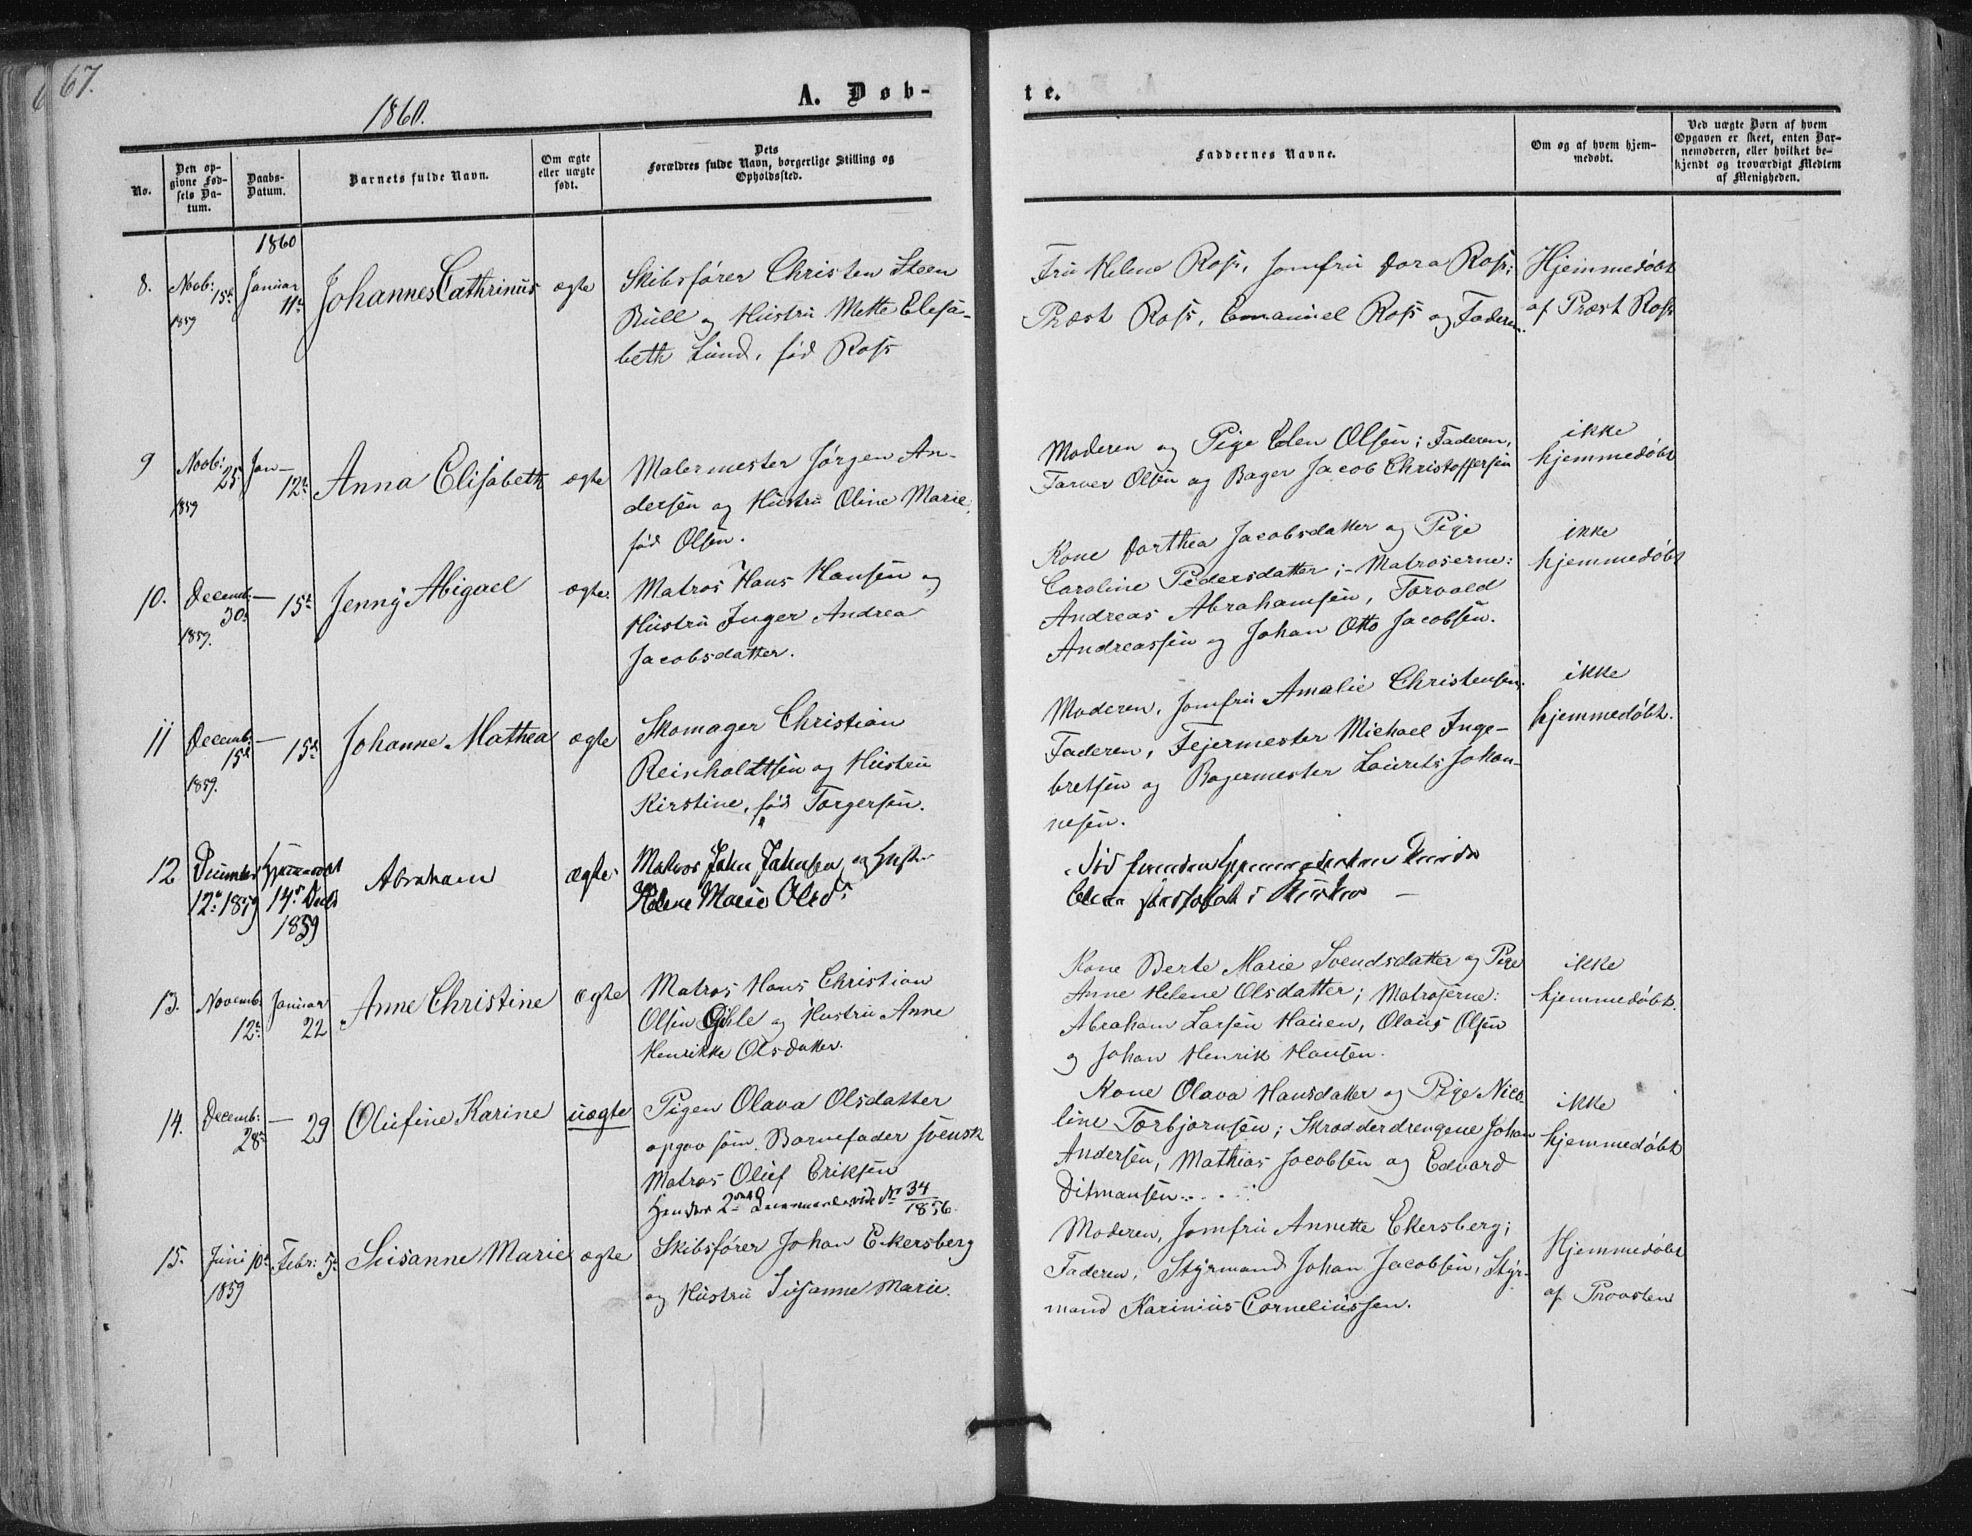 67.
1860.
A. Døb-
te.
No.
Den op-
givne Fød-
sels Da-
tum.
Daabs-
Datum.
Barnets fulde Navn.
Om ægte
eller uægte
født.
Dets
Forældres fulde Navn, borgerlige Stilling og
Opholdssted.
Faddernes Navne.
Om og af hvem hjem-
medøbt.
Ved uægte Børn af hvem
Opgaven er skeet, enten Bar-
nemoderen, eller hvilket be-
kjendt og troværdigt Medlem
af Menigheden.
1860
8.
Novb:
15de
1859
Januar
11te
Johannes Cathrinus
ægte
Skibsfører Christen Steen
Bull og Hustru Mette Elisa-
beth Lund, fød Ross
Fru Helene Ross, Jomfru Dora Ross;
Præst Ross, Emanuel Ross og Faderen.
Hjemmedøbt
af Præst Ross
9
Novb:
25
1859
Jan-
12te
Anna Elisabeth
ægte
Malermester Jørgen An-
dersen og Hustru Oline Marie,
fød Olsen.
Moderen og Pige Elen Olsen; Faderen,
Farver Olsen og Bager Jacob Christoffersen
ikke
hjemmedøbt
10.
Decemb:
30
1859.
— 15de
Jenny Abigael
ægte.
Matros Hans Hansen og
Hustru Inger Andrea
Jacobsdatter.
Kone Dorthea Jacobsdatter og Pige
Caroline Pedersdatter; - Matroserne:
Andreas Abrahamsen, Torvald
Andreassen og Johan Otto Jacobsen.
ikke
hjemmedøbt
11
Decemb.
15de
1859.
— 15de
Johanne Mathea
ægte
Skomager Christian
Reinholdtsen og Hustru
Kirstine, fød Torgersen.
Moderen, Jomfru Amalie Christensen;
Faderen, Fejermester Michael Inge-
bretsen og Bagermester Laurits Johan-
nesen.
ikke
hjemmedøbt.
12
December
12te 1859
Hjemmedøbt
14de Decb
1859
Abraham
ægte
Matros John Johnsen og Hustr
Helene Marie Olsdr
Død forinden
i Kirken —
13.
Novemb:
12te
Januar
22
Anne Christine
ægte
Matros Hans Christian
Olsen Gjble og Hustru Anne
Henrikke Olsdatter.
Kone Berte Marie Svendsdatter og Pige
Anne Helene Olsdatter; Matroserne:
Abraham Larsen Hauen, Olaus Olsen
og Johan Henrik Hansen.
ikke
hjemmedøbt.
14.
Decemb:
28de
— 29
Olufine Karine
uægte
Pigen Olava Olsdatter
opgav som Barnefader svensk
Matros Oluf Eriksen
Hendes 2det Leiermaal vide No 34/1856.
Kone Olava Hansdatter og Pige Nico-
line Torbjørnsen; Skrædderdrengene Johan
Andersen, Mathias Jacobsen og Edvard
Ditmansen....
ikke
hjemmedøbt
15.
Juni 10de
1859
Febr: 5te
Susanne Marie
ægte
Skibsfører Johan Eckersberg
og Hustru Susanne Marie.
Moderen, Jomfru Annette Ekersberg;
Faderen, Styrmand Johan Jacobsen, Styr-
mand Karinius Corneliussen.
Hjemmedøbt
af Provsten